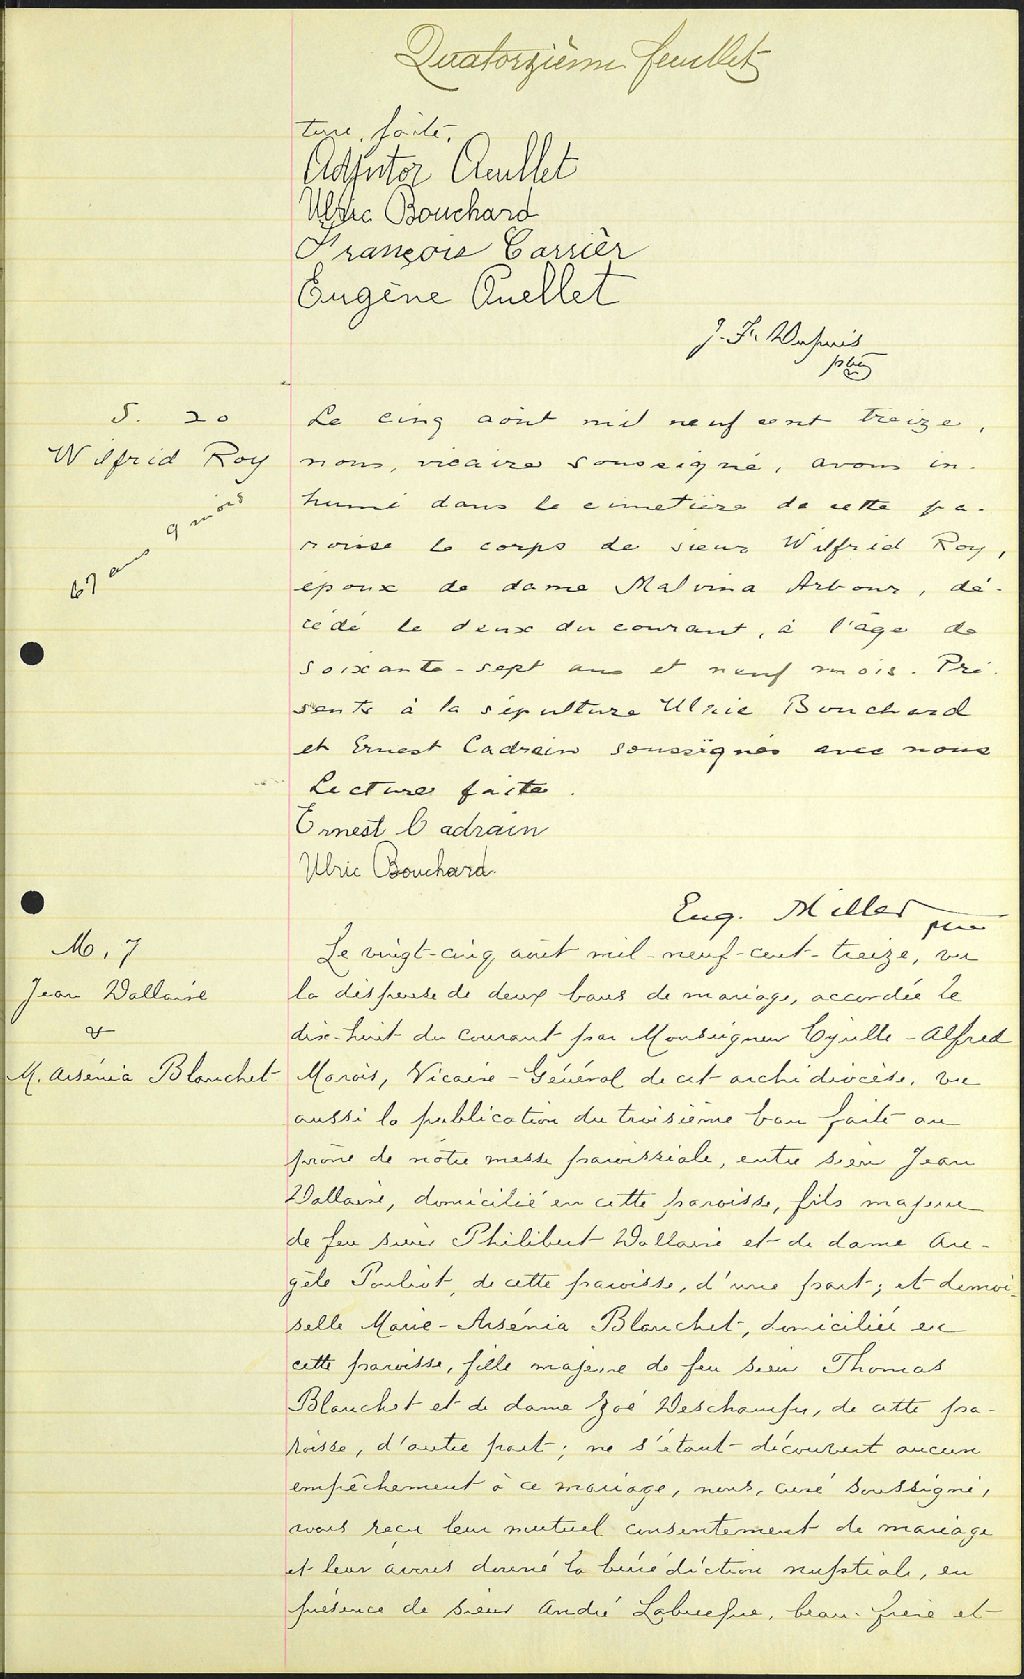 Quatorzième feuillet
ture faite.
Adjutor Oeullet
Ulric Bouchard
François Carrièr
Eugène Ouellet
J. F. Dupuis
ptre
S. 20
Wilfrid Roy
67 ans 9 mois
Le cinq août mil neuf cent treize,
nous, vicaire soussigné, avons in-
humé dans le cimetière de cette pa-
roisse le corps de sieur Wilfrid Roy,
époux de dame Malvina Arbour, dé-
cédé le deux du courant, à l'âge de
soixante-sept ans et neuf mois. Pré-
sents à la sépulture Ulric Bouchard
et Ernest Cadrain soussignés avec nous
Lecture faite.
Ernest Cadrain
Ulric Bouchard.
Eug. Miller ptre
M. 7
Jean Dallaire
&
M. Arsénia Blanchet
Le vingt-cinq août mil-neuf-cent-treize, vu
la dispense de deux bans de mariage, accordée le
dix-huit du courant par Monseigneur Cyrille-Alfred
Marois, Vicaire-Général de cet archidiocèse, vu
aussi la publication du troisième ban faite au
prône de nôtre messe paroissiale, entre sieur Jean
Dallaire, domicilié en cette paroisse, fils majeur
de feu sieur Philibert Dallaire et de dame An-
gèle Pouliot, de cette paroisse, d'une part; et demoi-
selle Marie-Arsénia Blanchet, domiciliée en
cette paroisse, fille majeure de feu sieur Thomas
Blanchet et de dame Zoé Deschamps, de cette pa-
roisse, d'autre part; ne s'étant découvert aucun
empêchement à ce mariage, nous, curé soussigné,
avons reçu leur mutuel consentement de mariage
et leur avons donné la bénédiction nuptiale, en
présence de sieur André Labrecque, beau-frère et